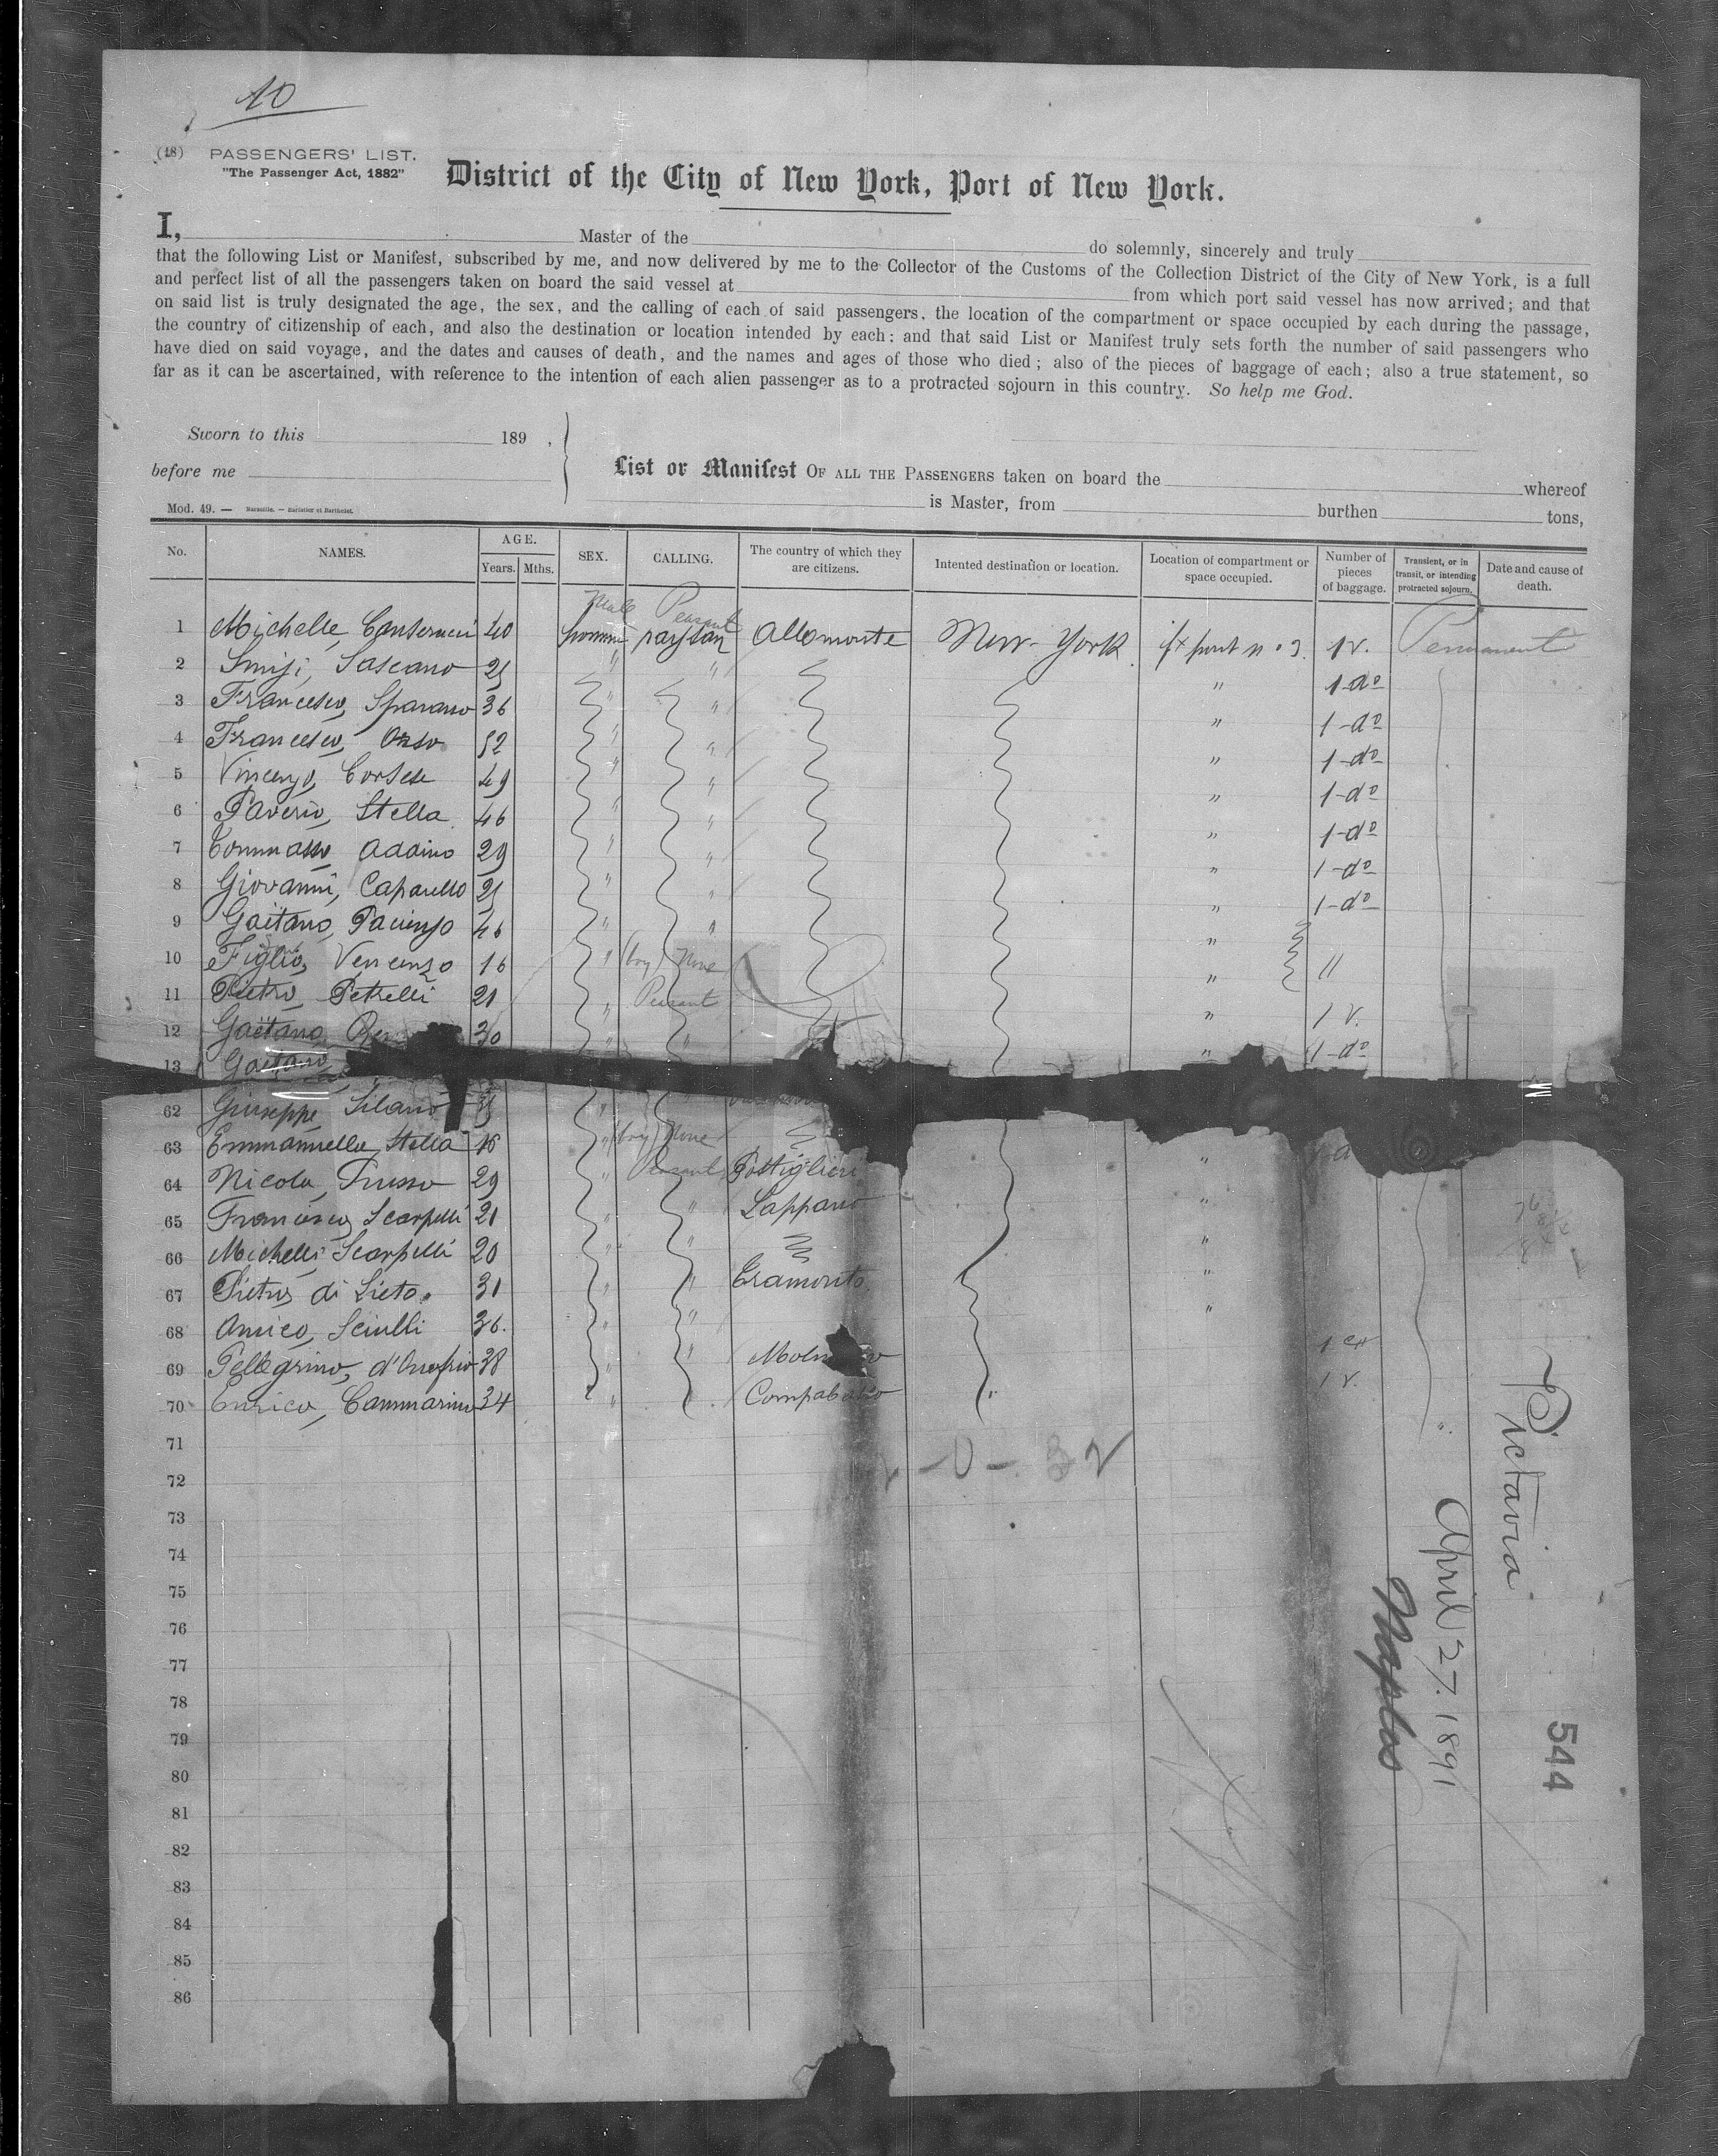 10
(18) PASSENGERS' LIST.
"The Passenger Act, 1882"
District of the City of New York, Port of New York.
I, Master of the do solemnly, sincerely and truly
that the following List or Manifest, subscribed by me, and now delivered by me to the Collector of the Customs of the Collection District of the City of New York, is a full
and perfect list of all the passengers taken on board the said vessel at from which port said vessel has now arrived; and that
on said list is truly designated the age, the sex, and the calling of each of said passengers, the location of the compartment or space occupied by each during the passage,
the country of citizenship of each, and also the destination or location intended by each: and that said List or Manifest truly sets forth the number of said passengers who
have died on said voyage, and the dates and causes of death, and the names and ages of those who died; also of the pieces of baggage of each; also a true statement, so
far as it can be ascertained, with reference to the intention of each alien passenger as to a protracted sojourn in this country. So help me God.
Sworn to this 189 ,
before me
List or Manifest OF ALL THE PASSENGERS taken on board the whereof
is Master, from burthen tons,
Mod. 49. — Marseille. — Barlatier et Barthelet.
No. NAMES. AGE. Years. Mths. SEX. CALLING. The country of which they are citizens. Intented destination or location. Location of compartment or space occupied. Number of pieces of baggage. Transient, or in transit, or intending protracted sojourn. Date and cause of death.
Male Peasant
1 Michelle, 40 homme paysan Allomonte New-York n° 3. 1 v. Permanent
2 25 " " " 1-do
3 Francesco, Sparano 36 " " " 1-do
4 Francesco, Orso 52 " " " 1-do
5 Vincenzo, Cortese 49 " " " 1-do
6 Saverio, Stella 46 " " " 1-do
7 Tommasso, Addino 29 " " " 1-do
8 Giovanni, Caparello 25 " " " 1-do
9 Gaëtano, Pacienzo 46 " " "
10 Figlio, Vencenzo 16 " (boy) None " "
11 Pietro, Petrelli 21 " Peasant " 1 v.
12 Gaëtano 30 " " " 1-do
13 Gaetano
62 Giuseppe, Silano 35 " "
63 Emmanuelle, Stella 16 " (boy) None
64 Nicola, Russo 29 " Peasant Postiglione "
65 Francisco, Scarpelli 21 " " Lappano "
66 Michelli, Scarpelli 20 " " "
67 Pietro, di Lieto. 31 " " Tramonto "
68 Amico, Sciulli 36. " " "
69 Pellegrino, d'Onofrio 38 " " 1
70 Enrico, Cammarino 34 " Compabasso " 1 v. "
71
72
73
74
75
76
77
78
79
80
81
82
83
84
85
86
Pictavia
April 27. 1891
Naples
544